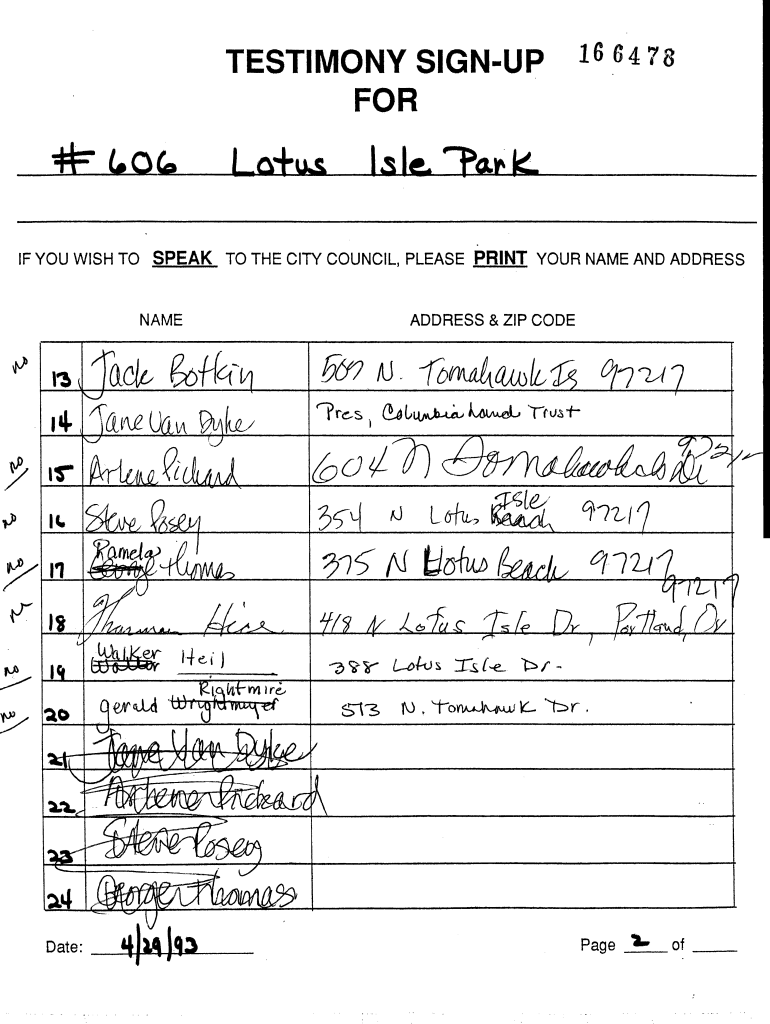 TESTIMONY SIGN-UP 166478
FOR
#606 Lotus Isle Park
IF YOU WISH TO SPEAK TO THE CITY COUNCIL, PLEASE PRINT YOUR NAME AND ADDRESS
NAME ADDRESS & ZIP CODE
no 13 Jack Botkin 507 N. Tomahawk Is 97217
14 Jane Van Dyke Pres, Columbia Land Trust
no 15 Arlene Pickard 604 N
no 16 Steve Posey 354 N Lotus Isle Beach 97217
no 17 Pamela George Thomas 375 N Lotus Beach 97217
no 18 418 N Lotus Isle Dr, Portland, Or 97217
no 19 Walker Walter Heil 388 Lotus Isle Dr.
no 20 gerald Rightmire Wrightmyer 513 N. Tomahawk Dr.
21 Jane Van Dyke
22 Arlene Pickard
23 Steve Posey
24 George Thomas
Date: 4/29/93 Page 2 of